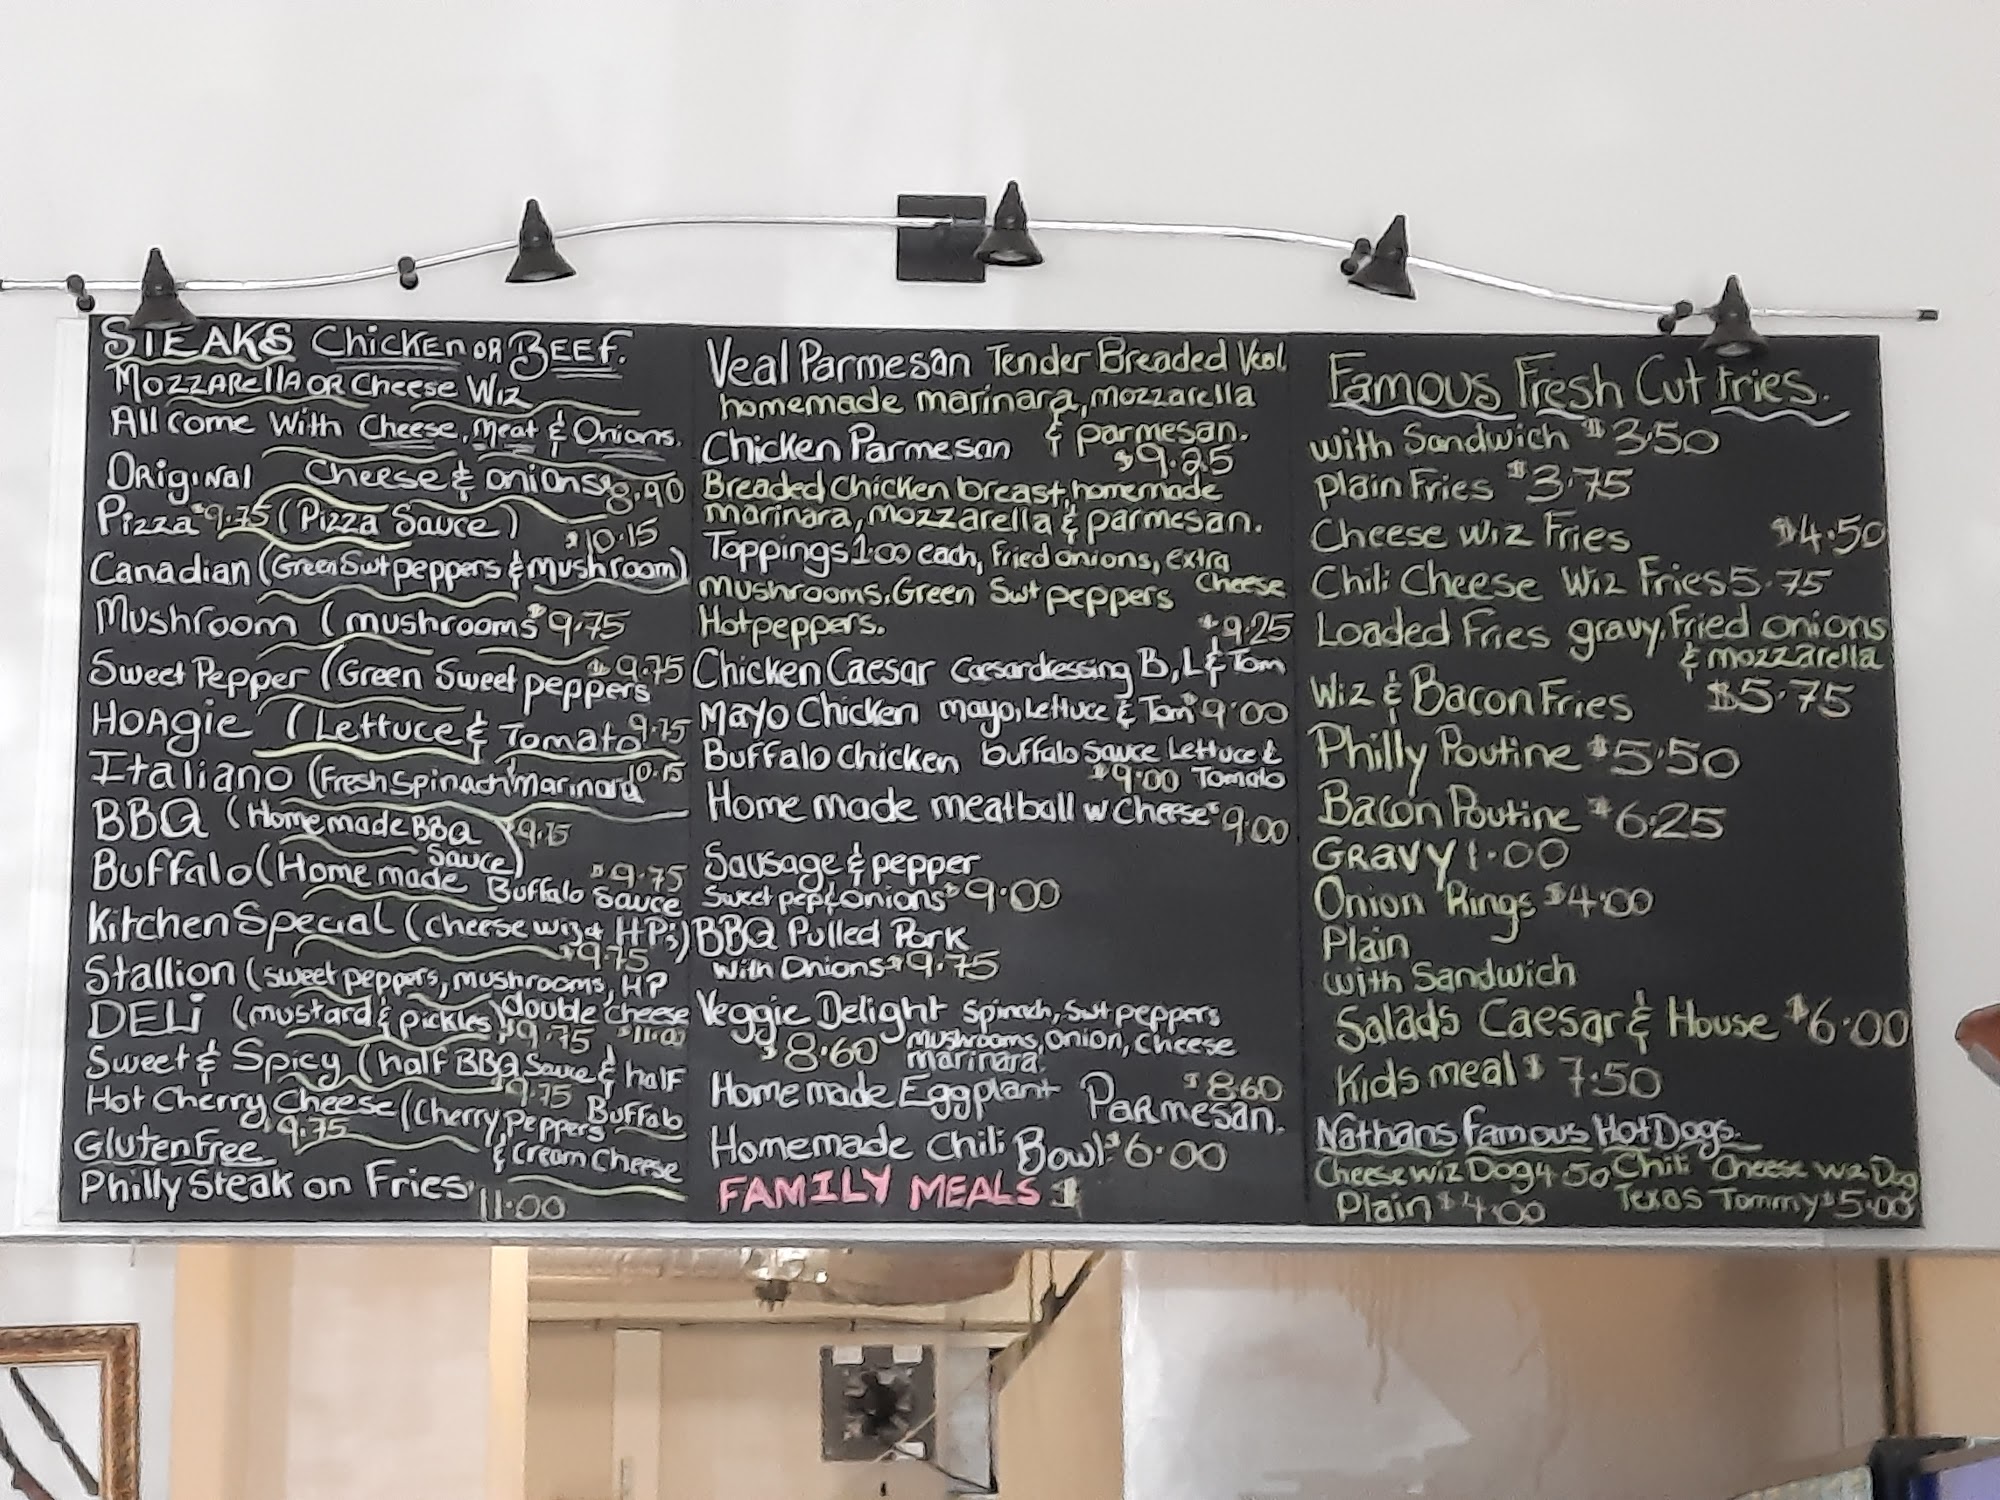 STEAKS Chicken OR BEEF.
Mozzarella OR Cheese Wiz
All Come With Cheese, Meat & Onions.
Original Cheese & onions $8.90
Pizza $9.75 (Pizza Sauce)
$10.15
Canadian (Green Swt peppers & mushroom)
Mushroom (mushrooms $9.75
Sweet Pepper (Green Sweet peppers $9.75
HOAgie (Lettuce & Tomato 9.75
Italiano (Fresh Spinach Marinara 10.15
BBQ (Homemade BBQ Sauce) $9.75
Buffalo (Home made Buffalo Sauce $9.75
Kitchen Special (cheese wiz & HP's)
$9.75
Stallion (sweet peppers, mushrooms, HP
double cheese $11.00
DELi (mustard & pickles) $9.75
Sweet & Spicy (half BBQ Sauce & half Buffalo
$9.75
Hot Cherry Cheese (Cherry peppers & cream cheese
$9.75
Gluten Free
Philly Steak on Fries
11.00
Veal Parmesan Tender Breaded Veal
homemade marinara, mozzarella
& parmesan.
Chicken Parmesan $9.25
Breaded chicken breast, homemade
marinara, mozzarella & parmesan.
Toppings 1.00 each, Fried onions, extra Cheese
Mushrooms, Green Swt peppers
Hot peppers.
$9.25
Chicken Caesar Caesar dressing B, L & Tom
Mayo Chicken mayo, Lettuce & Tom $9.00
Buffalo Chicken buffalo sauce Lettuce &
$9.00 Tomato
Home made meatball w Cheese $9.00
Sausage & pepper
Sweet pep & onions $9.00
BBQ Pulled Pork
with Onions $9.75
Veggie Delight Spinach, Swt peppers
$8.60 mushrooms, onion, cheese
marinara.
Home made Eggplant Parmesan. $8.60
Homemade Chili Bowl $6.00
FAMILY MEALS $
Famous Fresh Cut fries.
with Sandwich $3.50
Plain Fries $3.75
Cheese Wiz Fries $4.50
Chili Cheese Wiz Fries 5.75
Loaded Fries gravy, Fried onions
& mozzarella
Wiz & Bacon Fries $5.75
Philly Poutine $5.50
Bacon Poutine $6.25
GRAVY 1.00
Onion Rings $4.00
Plain
with Sandwich
Salads Caesar & House $6.00
Kids meal $7.50
Nathans famous HotDogs.
Cheese wiz Dog 4.50 Chili Cheese Wiz Dog
Plain $4.00 Texas Tommy $5.00